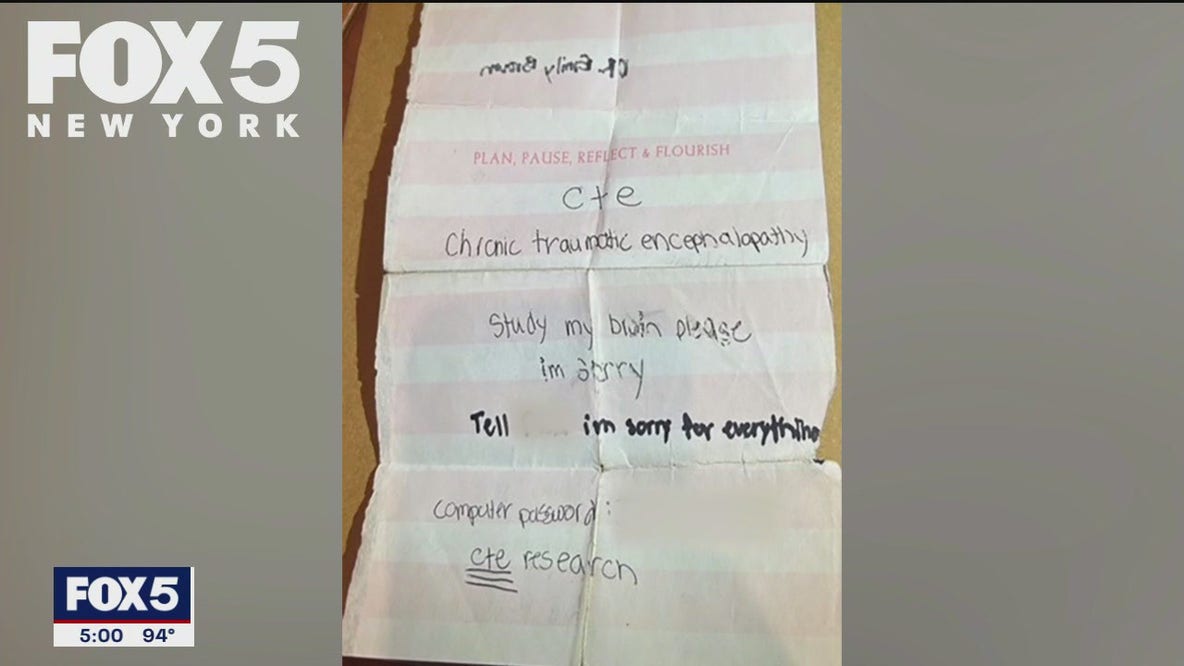 FOX 5
NEW YORK
PLAN, PAUSE, REFLECT & FLOURISH
cte
Chronic traumatic encephalopathy
Study my brain please
im sorry
Tell im sorry for everything
computer password:
cte research
FOX 5
5:00 94°